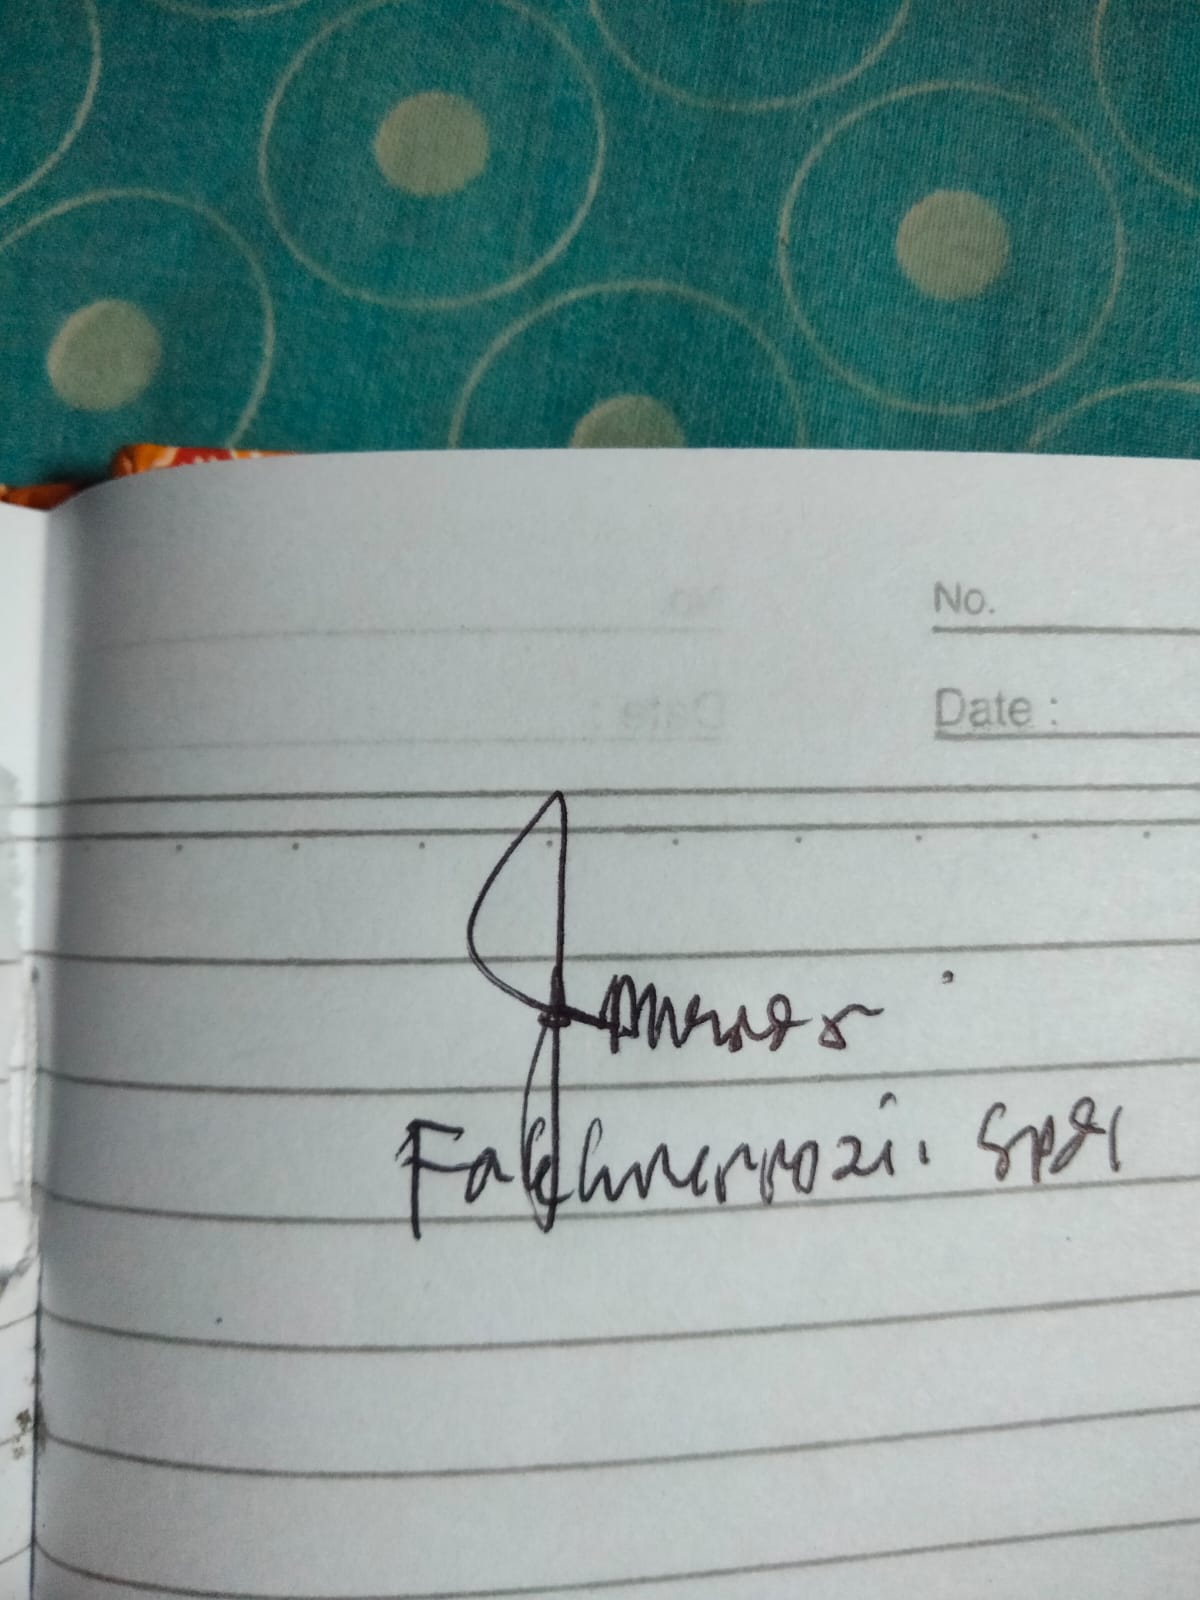 No.
Date :
Fakhrurrozi. Spdi